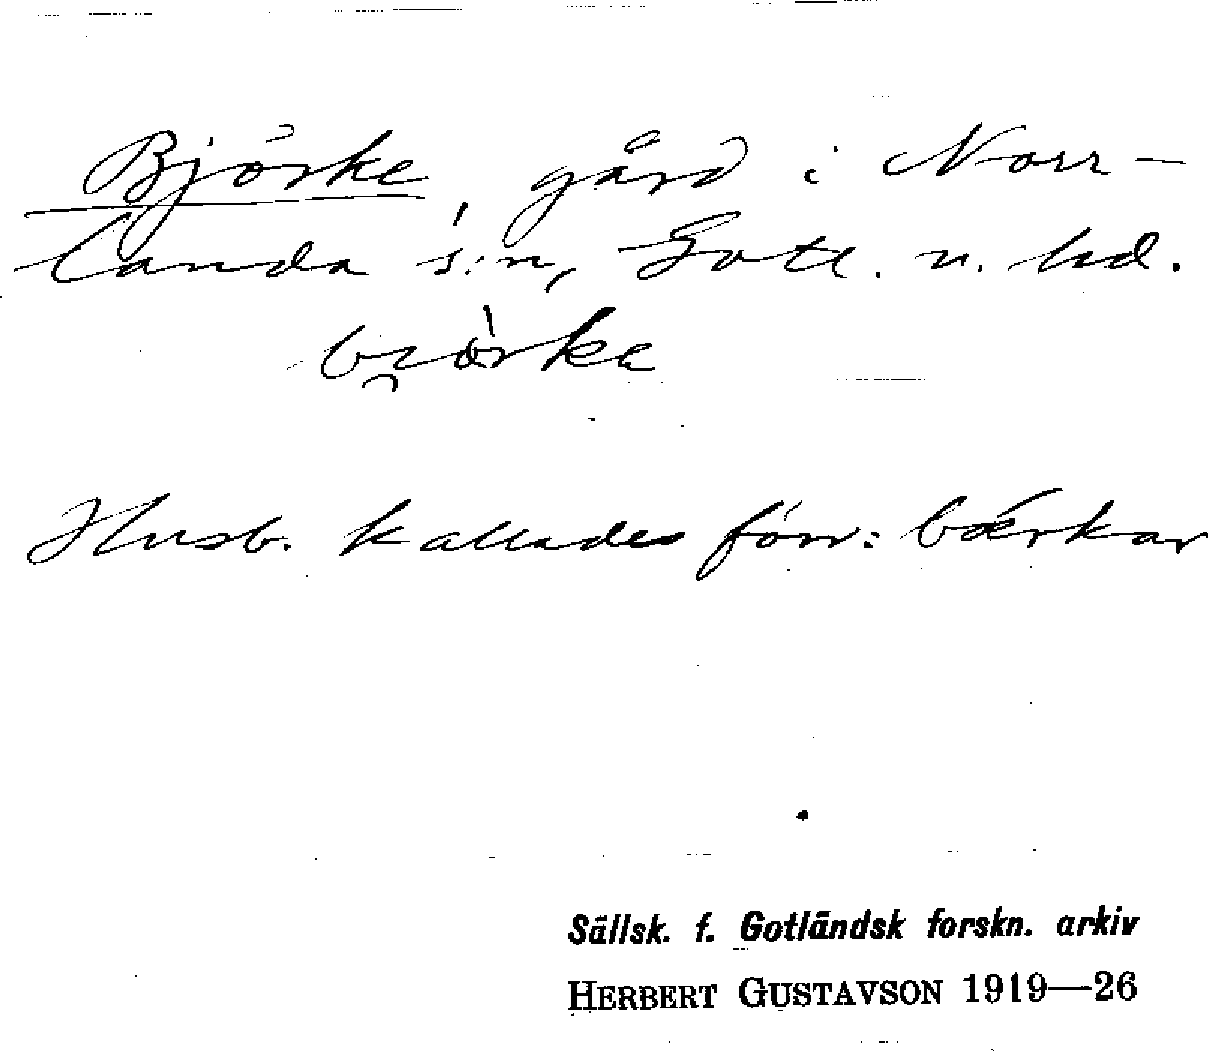 Björke, gård i Norr-
landa s:n, Gotl. n. hd.
bi̯òrke
Husb. kallades förr: bǽrkar
Sällsk. f. Gotländsk forskn. arkiv
HERBERT GUSTAVSON 1919—26